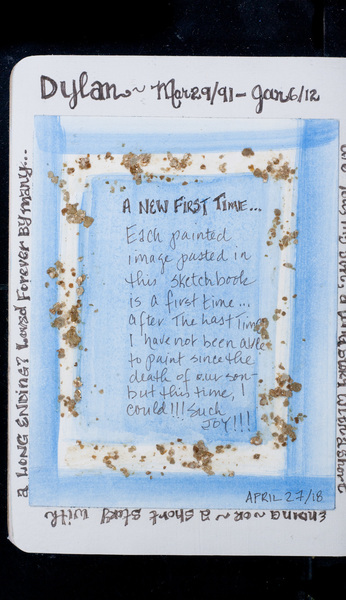 Dylan ~ Mar 29/91 – Jan 6/12
A NEW FIRST TIME...
Each painted
image pasted in
this sketchbook
is a first time...
after The Last Time
I have not been able
to paint since the
death of our son-
but this time, I
could!!! Such
JOY!!!
APRIL 27/18
my son, a short
ENDING ~ OR ~ a short story with
a LONG ENDING? Loved Forever By many...